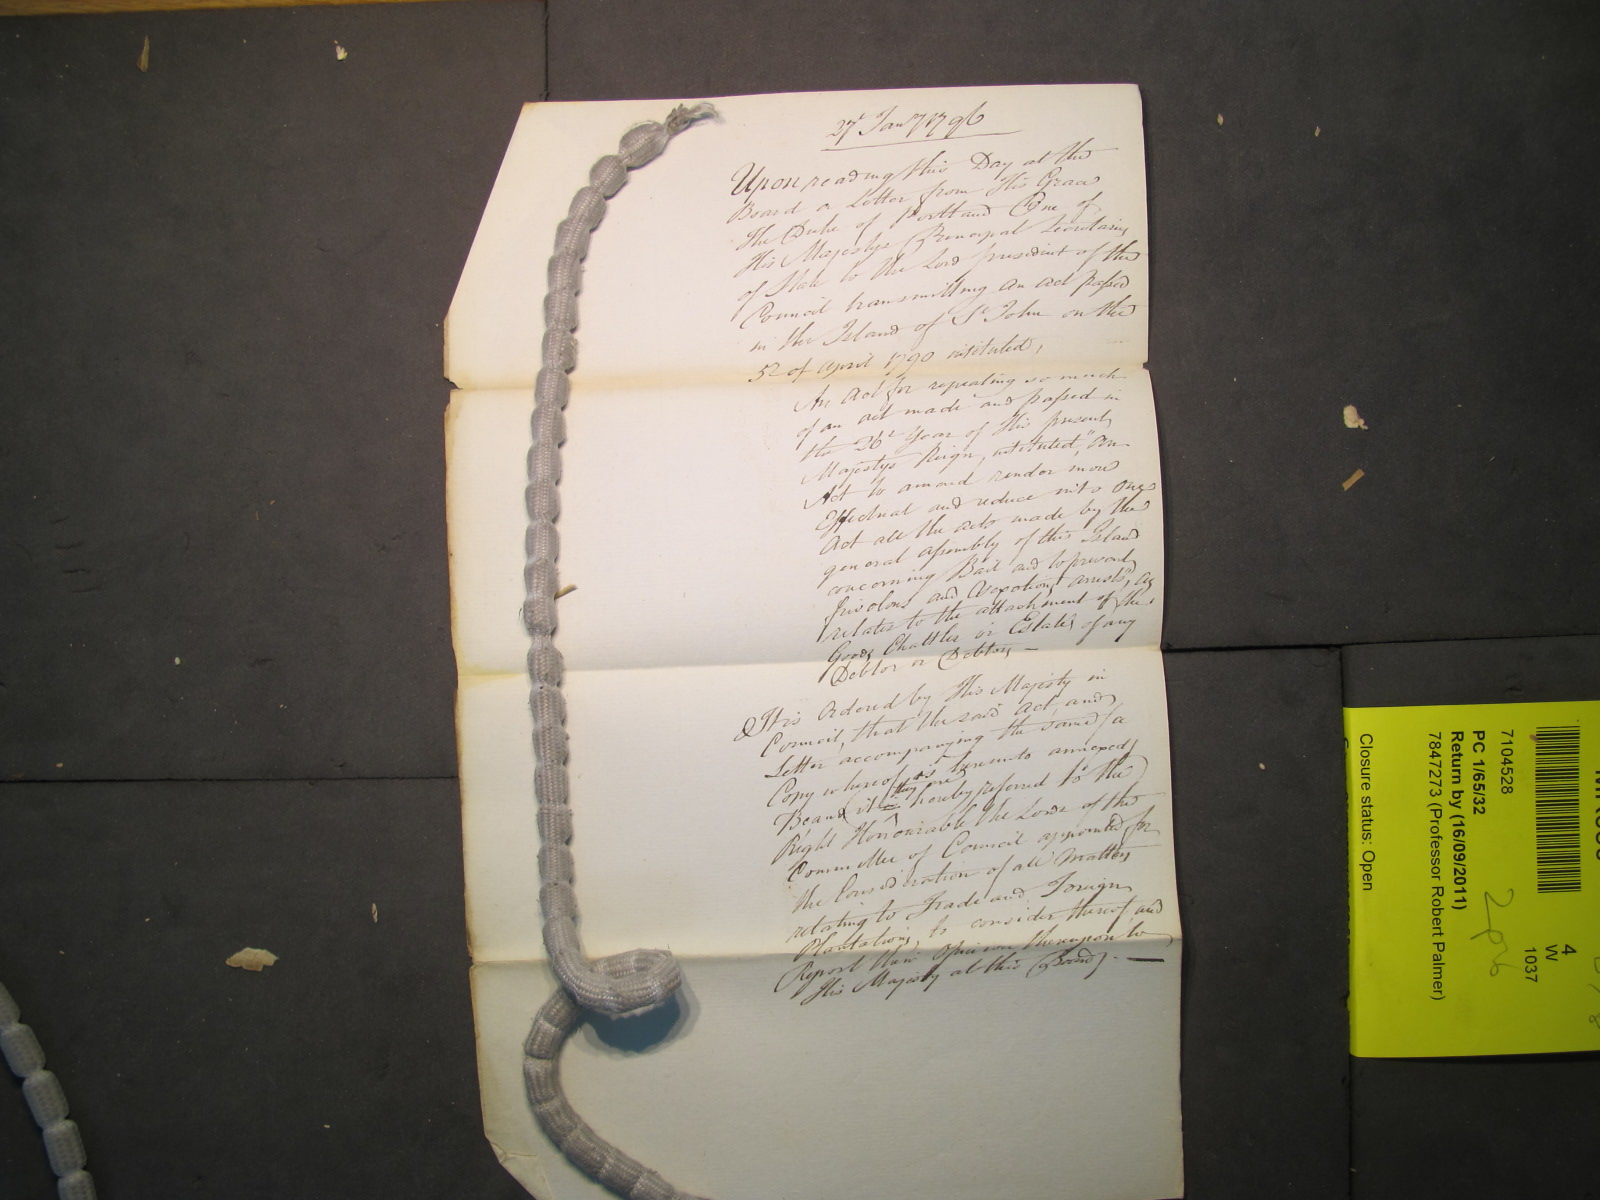 27th Jany 1796
Upon reading this Day at the
Board a Letter from His Grace
the Duke of Portland One of
His Majestys Principal Secretaries
of State to the Lord president of the
Council transmitting an act passed
in the Island of St John on the
5th of April 1790 intituled,
An Act for repealing so much
of an act made and passed in
the 26th Year of His present
Majestys Reign, intituled, "An
Act to amend render more
Effectual and reduce into One
Act all the acts made by the
general assembly of this Island
concerning Bail and to prevent
frivolous and Vexatious arrests", as
relates to the attachment of the
Goods, Chattles or Estates of any
Debtor or Debtors —
It is Ordered by His Majesty in
Council, that the said Act, and
Letter accompanying the same (a
Copy whereof is hereunto annexed)
Be and they are hereby referred to the
Right Honourable the Lords of the
Committee of Council appointed for
the Consideration of all Matters
relating to Trade and Foreign
Plantations, to consider thereof and
Report their Opinion thereupon to
His Majesty at this Board. —
4
W
1037
7104528
PC 1/65/32
Return by (16/09/2011)
7847273 (Professor Robert Palmer)
Closure status: Open